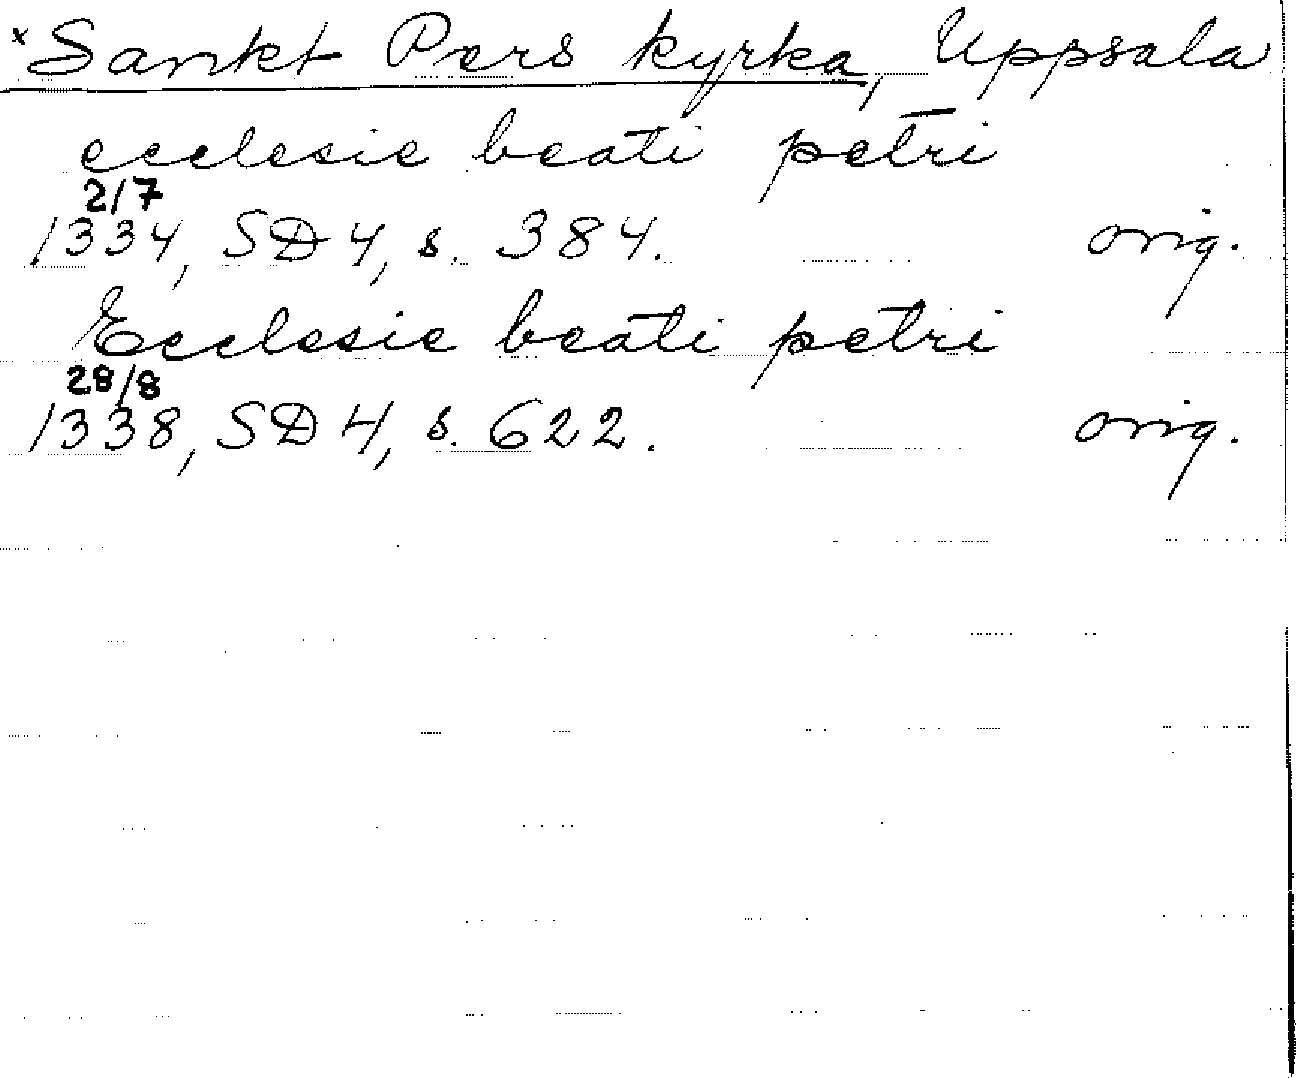 ×Sankt Pers kyrka, Uppsala
ecclesie beati petri
2/7
1334, SD 4, s. 384. orig.
Ecclesie beati petri
28/8
1338, SD 4, s. 622. orig.